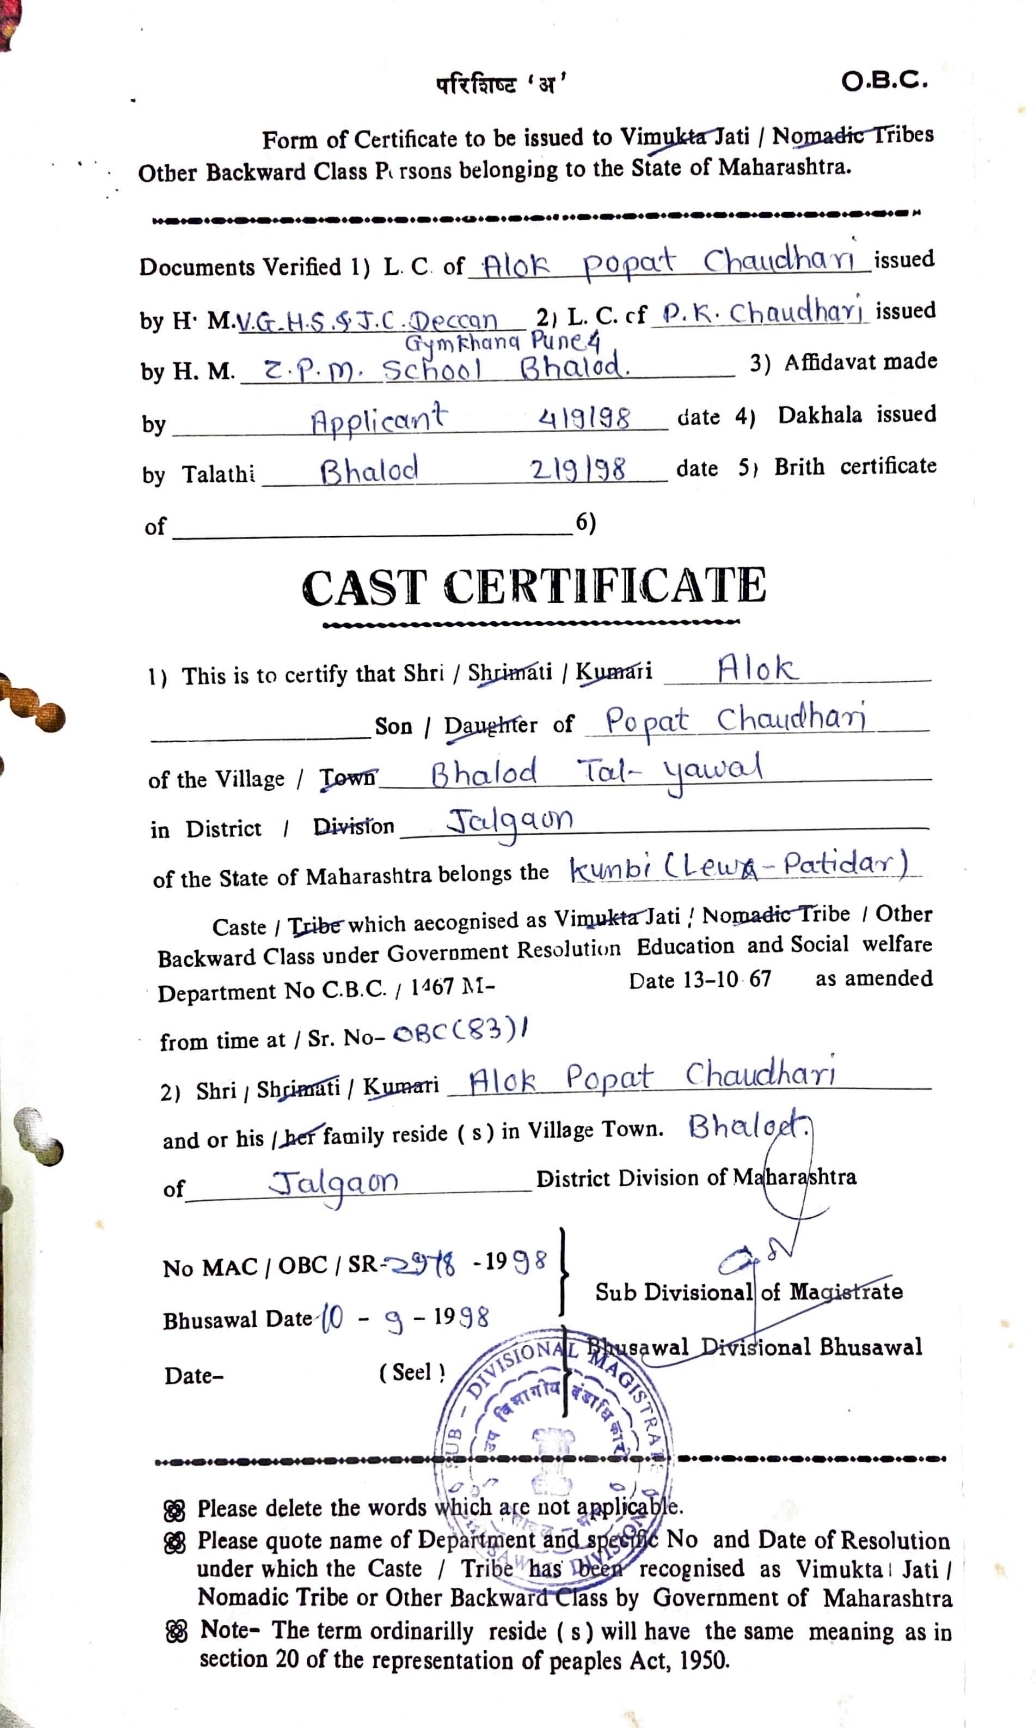 परिशिष्ट ‘अ’
O.B.C.
Form of Certificate to be issued to Vimukta Jati / Nomadic Tribes
Other Backward Class P rsons belonging to the State of Maharashtra.
Documents Verified 1) L. C. of Alok Popat Chaudhari issued
by H. M. V.G.H.S.&J.C. Deccan 2) L. C. cf P.K. Chaudhari issued
Gymkhana Pune 4
by H. M. Z.P.M. School Bhalod. 3) Affidavat made
by Applicant 4/9/98 date 4) Dakhala issued
by Talathi Bhalod 2/9/98 date 5) Brith certificate
of 6)
CAST CERTIFICATE
1) This is to certify that Shri / Shrimati / Kumari Alok
Son / Daughter of Popat Chaudhari
of the Village / Town Bhalod Tal- Yawal
in District / Division Jalgaon
of the State of Maharashtra belongs the Kunbi (Lewa-Patidar)
Caste / Tribe which aecognised as Vimukta Jati / Nomadic Tribe / Other
Backward Class under Government Resolution Education and Social welfare
Department No C.B.C. / 1467 M- Date 13-10-67 as amended
from time at / Sr. No- OBC(83)1
2) Shri / Shrimati / Kumari Alok Popat Chaudhari
and or his / her family reside ( s ) in Village Town. Bhalod.
of Jalgaon District Division of Maharashtra
No MAC / OBC / SR-2978 -1998
Sub Divisional of Magistrate
Bhusawal Date 10 - 9 - 1998
Bhusawal Divisional Bhusawal
Date- ( Seel )
SUB - DIVISIONAL MAGISTRATE
उप विभागीय दंडाधिकारी
BHUSAWAL DIVISION
Please delete the words which are not applicable.
Please quote name of Department and specific No and Date of Resolution
under which the Caste / Tribe has been recognised as Vimukta Jati /
Nomadic Tribe or Other Backward Class by Government of Maharashtra
Note- The term ordinarilly reside ( s ) will have the same meaning as in
section 20 of the representation of peaples Act, 1950.